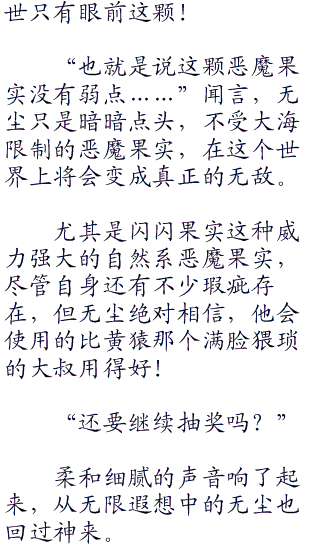 世只有眼前这颗！
“也就是说这颗恶魔果
实没有弱点……”闻言，无
尘只是暗暗点头，不受大海
限制的恶魔果实，在这个世
界上将会变成真正的无敌。
尤其是闪闪果实这种威
力强大的自然系恶魔果实，
尽管自身还有不少瑕疵存
在，但无尘绝对相信，他会
使用的比黄猿那个满脸猥琐
的大叔用得好！
“还要继续抽奖吗？”
柔和细腻的声音响了起
来，从无限遐想中的无尘也
回过神来。